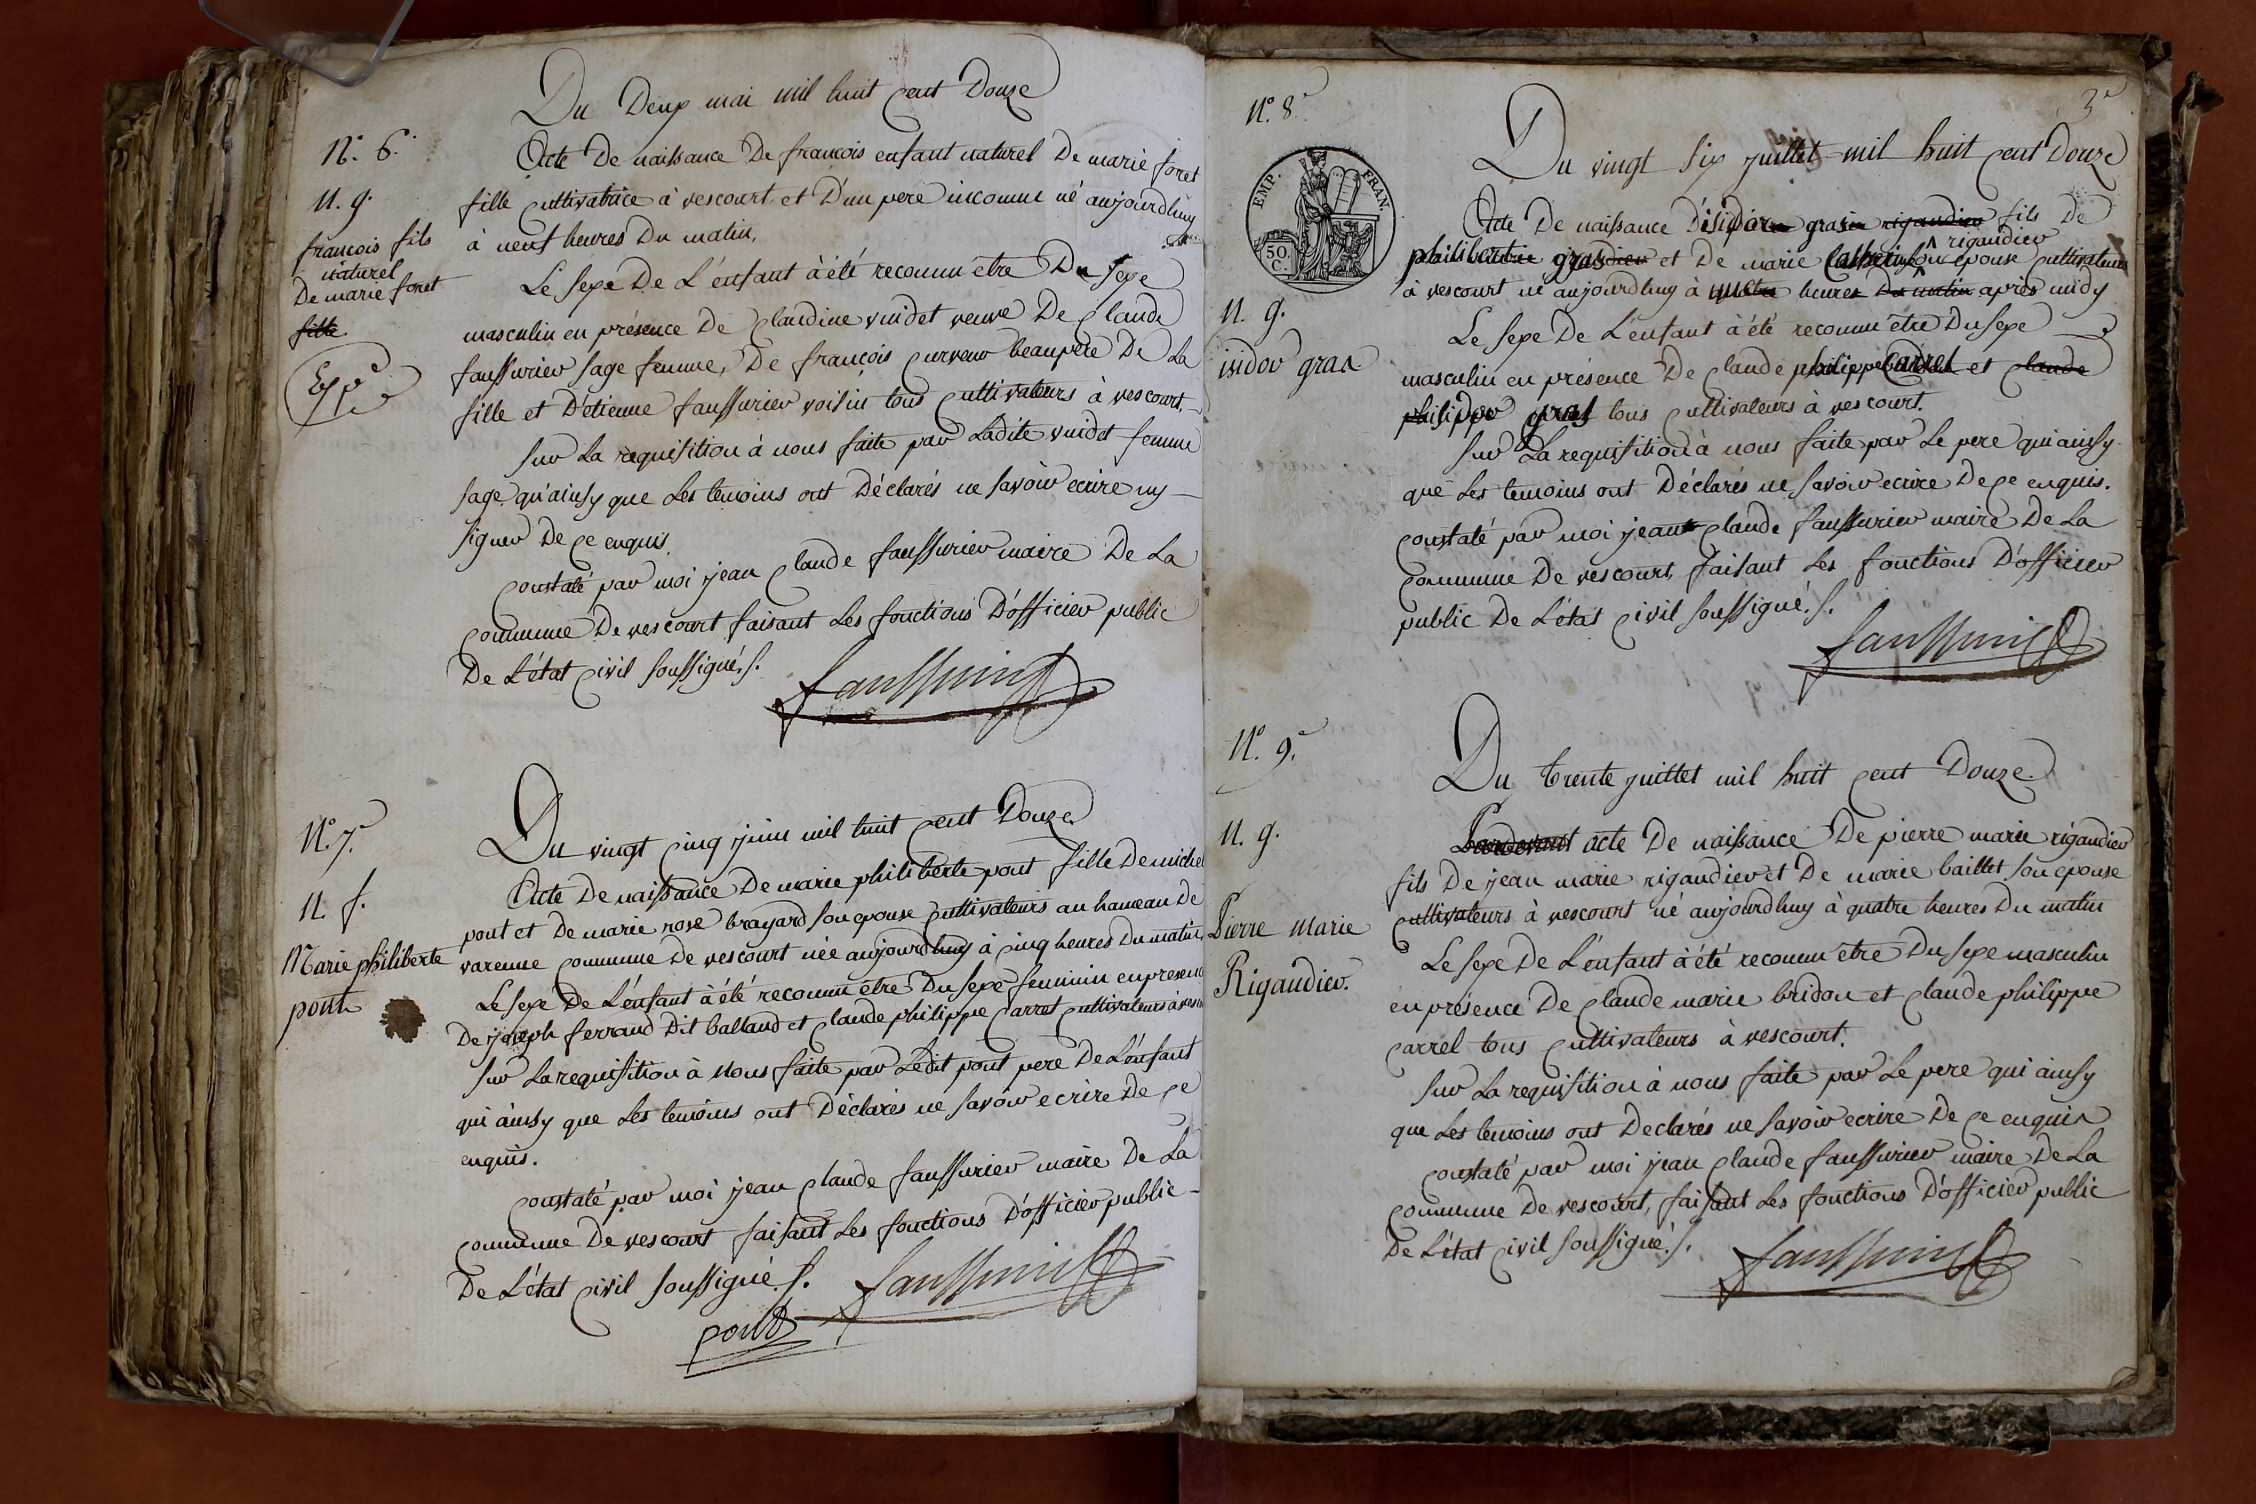 Du Deux mai mil huit cent Douze
N.° 6.
Acte De naissance De françois enfant naturel De marie foret
N. g.
fille cultivatrice à vescourt et D'un pere inconnu né aujourdhuy
à neuf heures Du matin.
françois fils
naturel
De marie foret
fille
Le sexe De L'enfant à été reconnu être Du sexe
masculin en présence De Claudine vuidet veuve De Claude
faussurier sage femme, De françois curveur beaupere De La
fille et D'etienne faussurier voisin tous cultivateurs à vescourt.
Sur La requisition à nous faite par Ladite vuidet femme
sage qu'ainsy que Les temoins ont Déclarés ne savoir ecrire ny
signer De ce enquis.
Constaté par moi jean Claude faussurier maire De La
commune De vescourt faisant Les fonctions D'officier public
De L'état Civil soussigné.
faussurier
N.° 7.
Du vingt cinq juin mil huit cent Douze
N. f.
Marie philiberte
pont
Acte De naissance De marie philiberte pont fille De michel
pont et De marie rose brayard son epouse cultivateurs au hameau De
varenne commune De vescourt née aujourdhuy à cinq heures Du matin
Le sexe De L'énfant à été reconnu etre Du sexe feminin en presence
De joseph ferrand Dit balland et Claude philippe Carret cultivateurs à
Sur La requisition à Nous faite par Ledit pont pere De L'énfant
qui àinsy que Les temoins ont Déclarés ne savoir ecrire De ce
enquis.
Constaté par moi jean Claude faussurier maire De La
commune De vescourt faisant Les fonctions D'officier public
De L'état Civil soussigné.
faussurier
pont
3e
N.° 8.
EMP. FRAN.
50 C.
Du vingt six juillet mil huit cent Douze
N. g.
isidor gras
Acte De naissance D'isidore gras rigaudier fils De
philibert gras et De marie rigaudier son epouse cultivateurs
à vescourt né aujourdhuy à heures Du matin après midy
Le sexe De L'enfant à été reconnu être Du sexe
masculin en présence De Claude philippe Carret et Claude
philippe gras tous cultivateurs à vescourt.
Sur La requisition à nous faite par Le pere qui ainsy
que Les temoins ont Déclarés ne savoir ecrire De ce enquis.
Constaté par moi jean Claude faussurier maire De La
commune De vescourt, faisant Les fonctions D'officier
public De L'état Civil soussigné.
faussurier
N.° 9.
Du trente juillet mil huit cent Douze
N. g.
Pierre Marie
Rigaudier.
Pardevant acte De naissance De pierre marie rigaudier
fils De jean marie rigaudier et De marie baillet son epouse
cultivateurs à vescourt né aujourdhuy à quatre heures Du matin
Le sexe De L'énfant à été reconnu être Du sexe masculin
en présence De Claude marie bridon et Claude philippe
Carrel tous cultivateurs à vescourt.
Sur La requisition à nous faite par Le pere qui àinsy
que Les temoins ont Declarés ne savoir ecrire De ce enquis
Constaté par moi jean Claude faussurier maire De La
commune De vescourt, faisant Les fonctions D'officier public
De L'état Civil soussigné.
faussurier